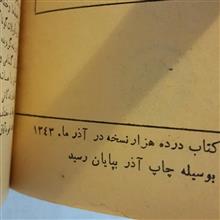 کتاب درده هزار نسخه در آذر ما. ۱۳۴۳
بوسیله چاپ آذر بپایان رسید